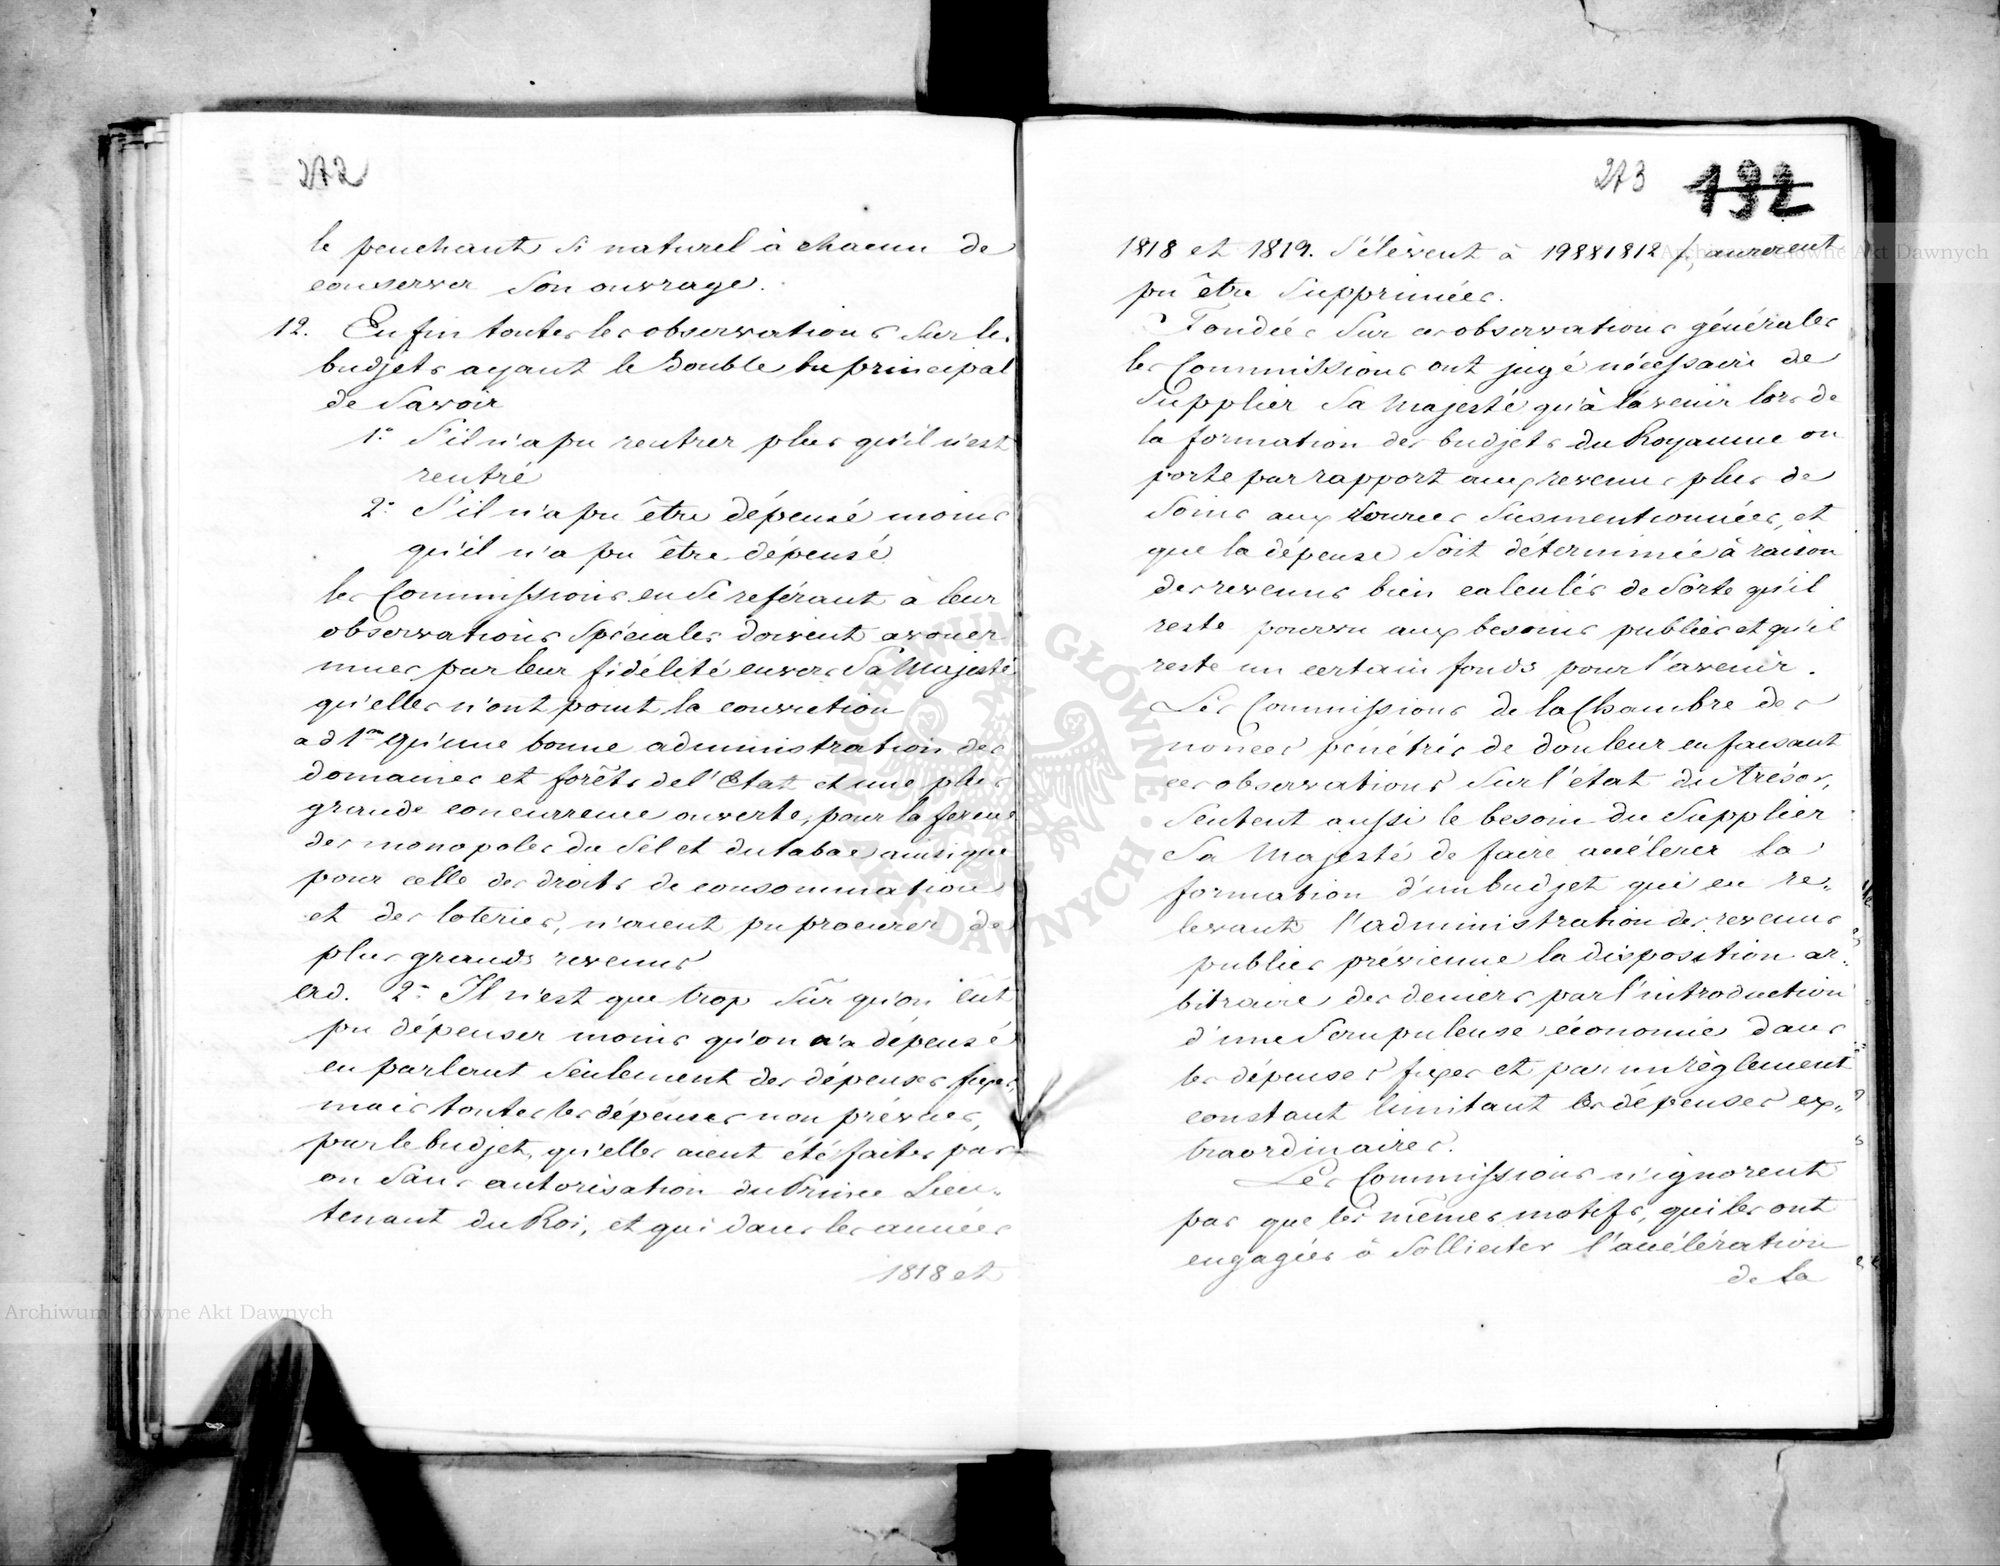 272
le penchant si naturel à chacun de
conserver son ouvrage.
12. Enfin toutes les observations sur les
budjets ayant le double but principal
de savoir
1° S'il n'a pu rentrer plus qu'il n'est
rentré
2° S'il n'a pu être dépensé moins
qu'il n'a pu être dépensé
les Commissions en se reférant à leur
observations spéciales doivent avouer
mues par leur fidélité envers Sa Majesté
qu'elles n'ont point la conviction
ad 1m qu'une bonne administration des
domaines et forêts de l'Etat et une plus
grande concurrence ouverte, pour la ferme
des monopoles du sel et du tabac ainsi que
pour celle des droits de consommation
et des loteries, n'aient pu procurer de
plus grands revenus
ad. 2° Il n'est que trop sûr qu'on eût
pu dépenser moins qu'on n'a dépensé
en parlant seulement des dépenses fixes,
mais toutes les dépenses non prévues,
par le budjet, qu'elles aient été faites par
ou sans autorisation du Prince Lieu-
tenant du Roi, et qui dans les années
1818 et
273 132
1818 et 1819. s'élèvent à 19881812 f, auraient
pu être supprimées.
Fondées sur ces observations générales
les Commissions ont jugé nécessaire de
supplier Sa Majesté qu'à l'avenir lors de
la formation des budjets du Royaume on
porte par rapport aux revenus plus de
soins aux sources susmentionnées, et
que la dépense soit déterminée à raison
des revenus bien calculés de sorte qu'il
reste pourvu aux besoins publics et qu'il
reste un certain fonds pour l'avenir.
Les Commissions de la Chambre des
nonces pénétrés de douleur en faisant
ces observations sur l'état du trésor,
sentent aussi le besoin du supplier
Sa Majesté de faire accélerer la
formation d'un budjet qui en re-
levant l'administration des revenus
publics prévienne la disposition ar-
bitraire des deniers par l'introduction
d'une scrupuleuse économie dans
les dépenses fixes et par un règlement
constant limitant les dépenses ex-
traordinaires.
Les Commissions n'ignorent
pas que les mêmes motifs, qui les ont
engagées à solliciter l'accélération
de la
Archiwum Główne Akt Dawnych
Archiwum Główne Akt Dawnych
ARCHIWUM GŁÓWNE AKT DAWNYCH